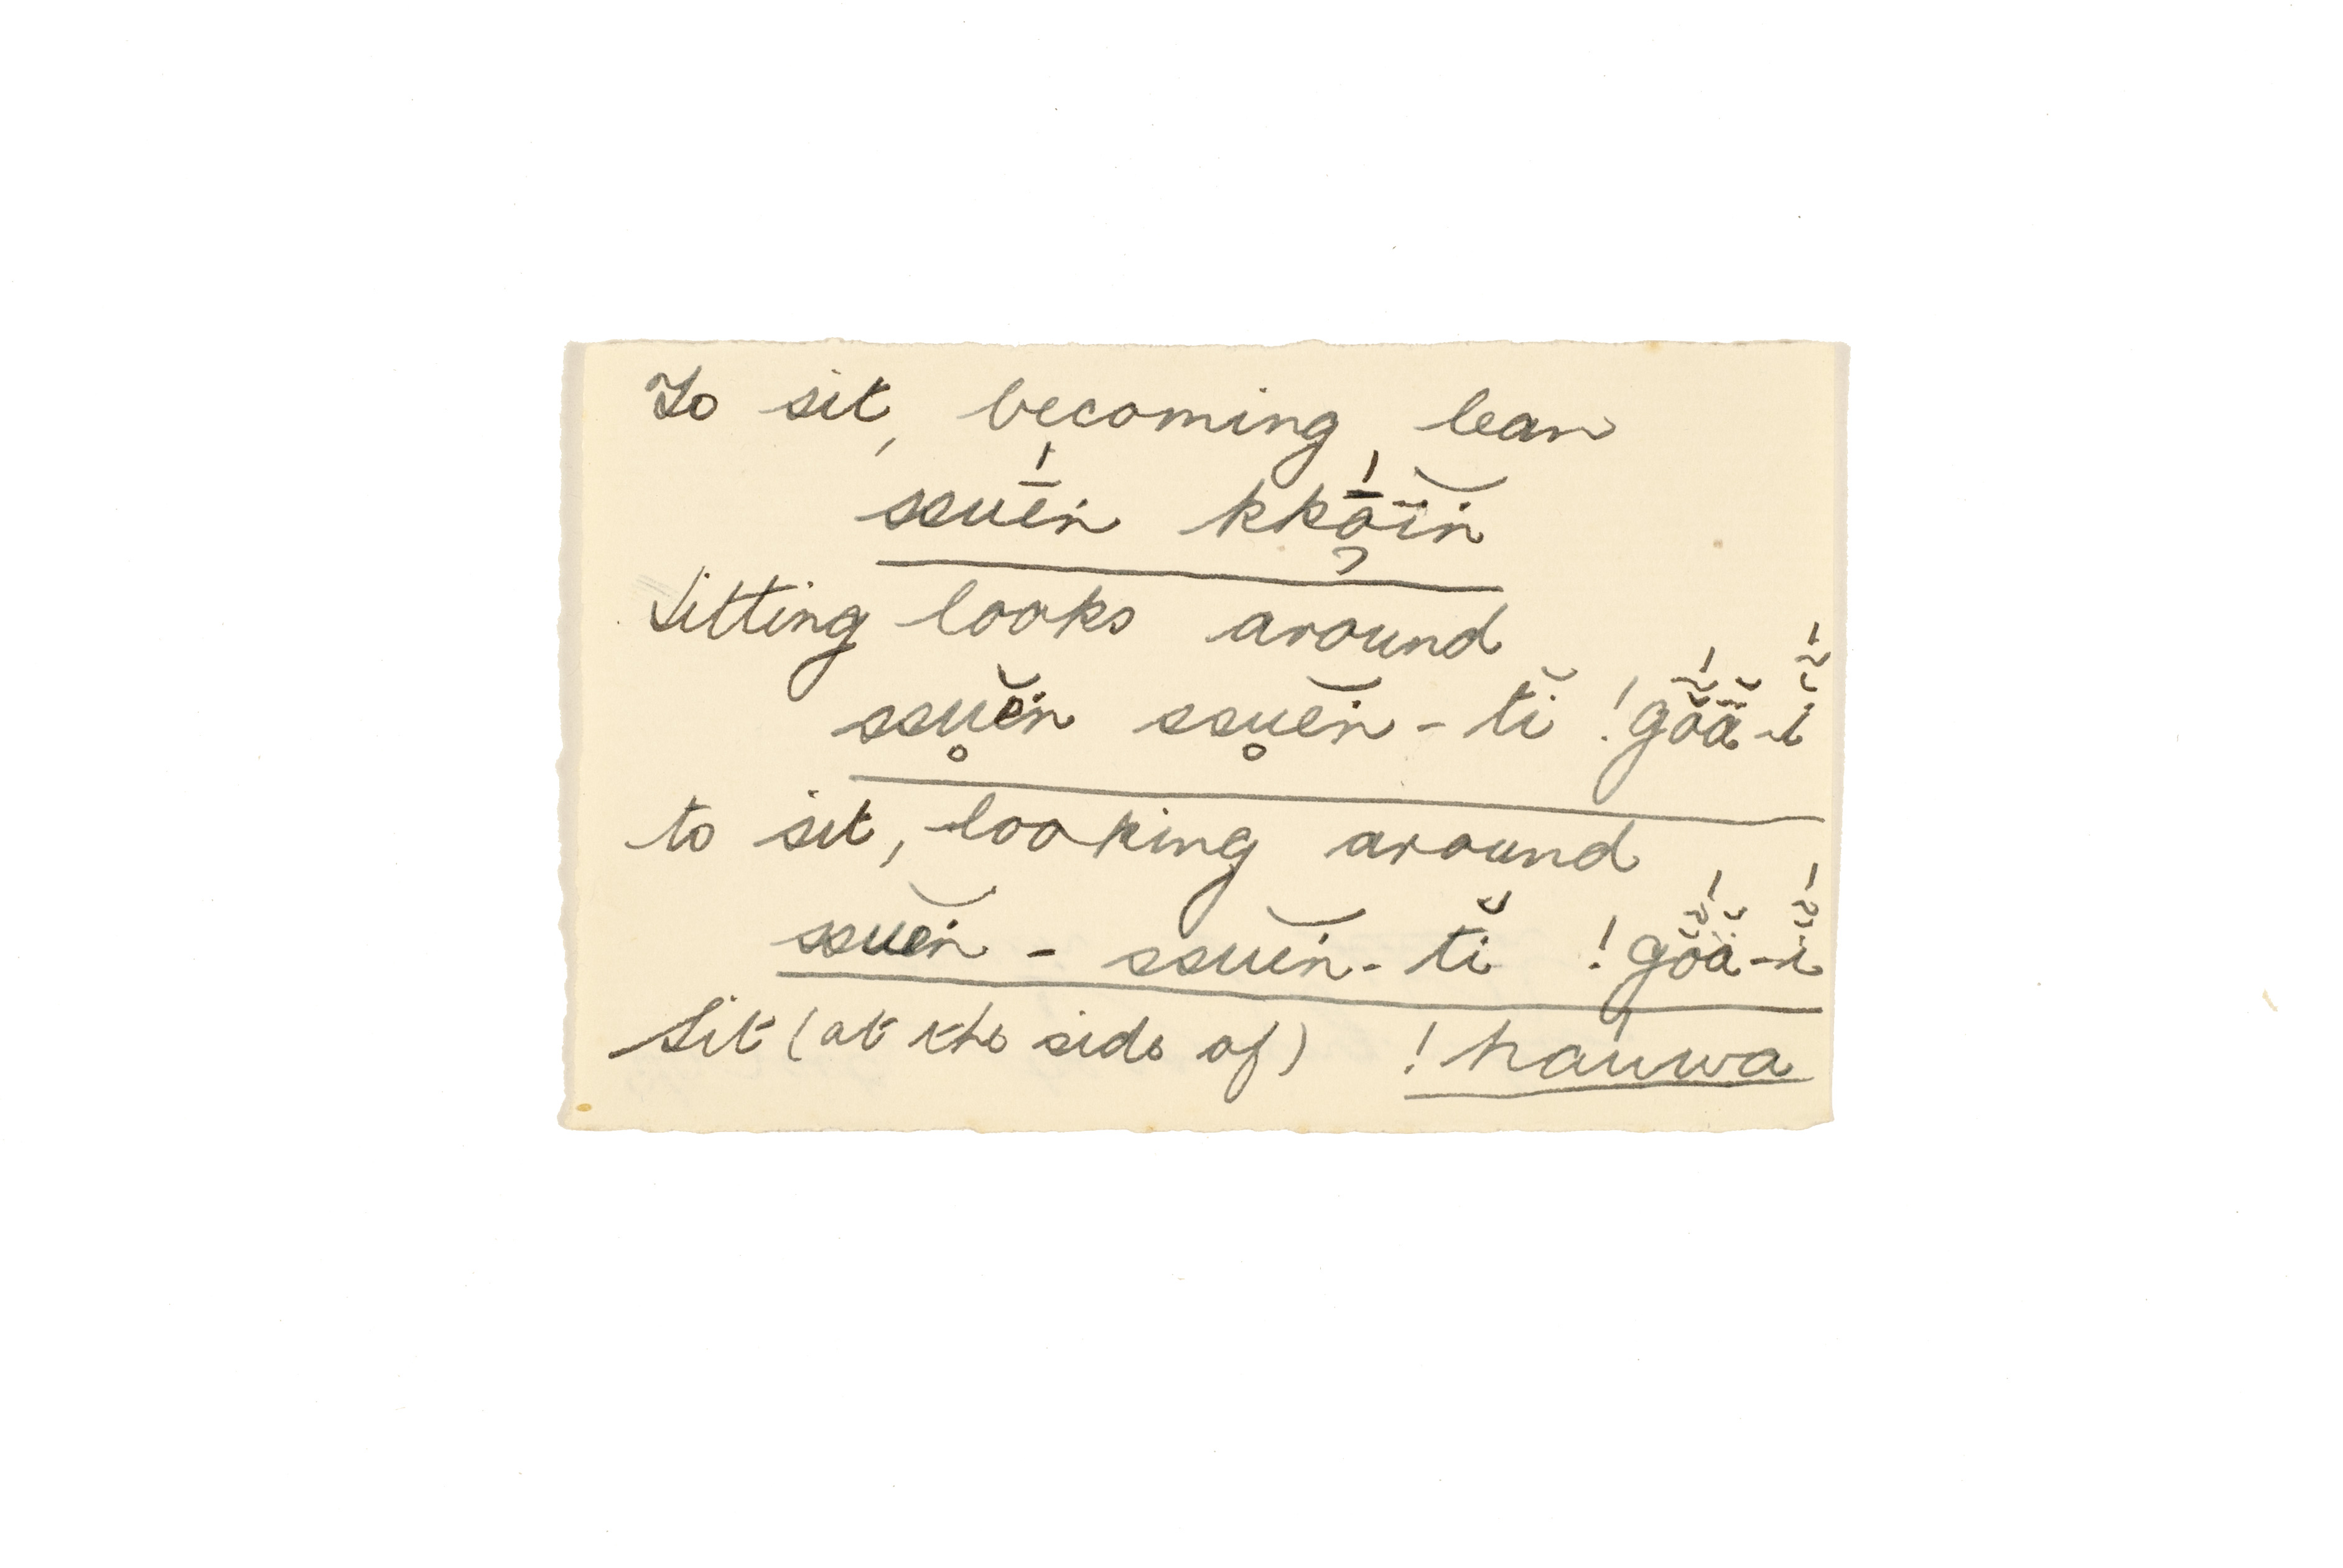 To sit, becoming lean
ssuḗń kkā̤́ïń
Sitting looks around
ssu̥ĕń ssu̥ĕń - tĭ !gŏ̃́ä̆-ĭ̃́
to sit, looking around
ssuĕń - ssuĕń - tĭ !gŏ̃́ä̆-ĭ̃́
Sit (at the side of) !haúwa